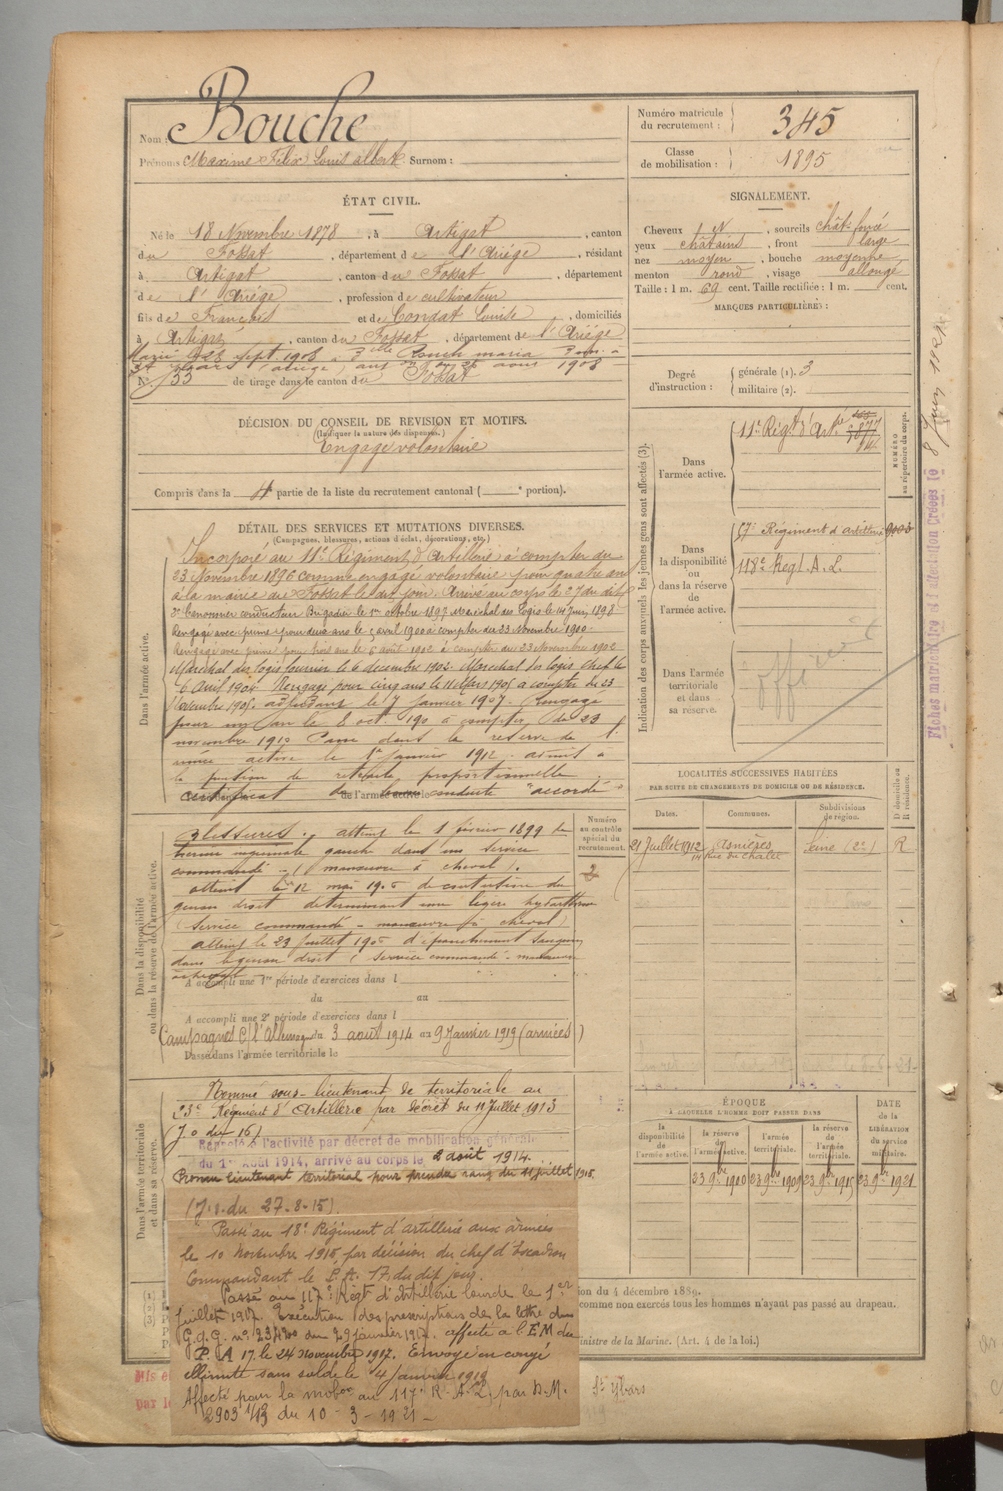 Nom : Bouche
Prénoms Maxime Félix Louis Albert Surnom :
Numéro matricule du recrutement : 345
Classe de mobilisation : 1895
ÉTAT CIVIL.
Né le 18 Novembre 1878, à Artigat, canton
du Fossat, département de l'Ariège, résidant
à Artigat, canton du Fossat, département
de l'Ariège, profession de cultivateur
fils de François et de Condat Louise, domiciliés
à Artigat, canton du Fossat, département de l'Ariège
Marié le 28 sept. 1908 à Melle Rouch Maria
août 1908
N° 33 de tirage dans le canton du Fossat
SIGNALEMENT.
Cheveux N, sourcils chât. foncé
yeux châtains, front large
nez moyen, bouche moyenne
menton rond, visage allongé
Taille : 1 m. 69 cent. Taille rectifiée : 1 m. cent.
MARQUES PARTICULIÈRES :
Degré d'instruction : générale (1). 3
militaire (2).
DÉCISION DU CONSEIL DE REVISION ET MOTIFS.
(Indiquer la nature des dispenses.)
Engagé volontaire
Compris dans la 4 partie de la liste du recrutement cantonal ( e portion).
DÉTAIL DES SERVICES ET MUTATIONS DIVERSES.
(Campagnes, blessures, actions d'éclat, décorations, etc.)
Dans l'armée active.
Incorporé au 11e Régiment d'Artillerie à compter du
23 Novembre 1896 comme engagé volontaire pour quatre ans
à la mairie du Fossat le dit jour. Arrivé au corps le 27 du dit
2e Canonnier conducteur Brigadier le 1er Octobre 1897. Maréchal des logis le 14 Juin 1898
Rengagé avec prime pour deux ans le 5 avril 1900 à compter du 23 Novembre 1900.
Rengagé avec prime pour trois ans le 6 août 1902 à compter du 23 Novembre 1902
Maréchal des logis fourrier le 6 décembre 1902. Maréchal des logis chef le
6 Avril 1904 Rengagé pour cinq ans le 11 Mars 1905 à compter du 23
Novembre 1905. adjudant le 7 janvier 1907. Rengagé
pour un an le 8 oct. 190 à compter du 23
novembre 1910 Passé dans la réserve de l'
armée active le 1er Janvier 1912. admit à
la pension de retraite proportionnelle
certificat de conduite "accordé"
Indication des corps auxquels les jeunes gens sont affectés (3).
NUMÉRO au répertoire du corps.
Dans l'armée active.
11e Régt d'Arte
Dans la disponibilité ou dans la réserve de l'armée active.
17e Régiment d'artillerie
118e Regt. A. L.
Dans l'armée territoriale et dans sa réserve.
Fiches matriculaire et d'affectation Créées le 8 Juin
LOCALITÉS SUCCESSIVES HABITÉES
PAR SUITE DE CHANGEMENTS DE DOMICILE OU DE RÉSIDENCE.
Dates. Communes. Subdivisions de région. D domicile ou R résidence.
21 Juillet 1912 Asnières Seine (2e) R
14 Rue du Chalet
Numéro au contrôle spécial du recrutement.
Dans la disponibilité ou dans la réserve de l'armée active.
Blessures : atteint le 1 février 1899 de
hernie inguinale gauche dans un service
commandé - (manœuvre à cheval).
atteint le 12 mai 1905 de contusion du
genou droit déterminant une légère hydarthrose
(service commandé - manœuvre à cheval)
atteint le 23 Juillet 1905 d'épanchement sanguin
dans le genou droit (service commandé - manœuvre
à cheval)
A accompli une 1re période d'exercices dans l
du au
A accompli une 2e période d'exercices dans l
Campagnes c/ l'Allemagne du 3 août 1914 au 9 Janvier 1919 (armées)
Passé dans l'armée territoriale le
Dans l'armée territoriale et dans sa réserve.
Nommé sous-lieutenant de territoriale au
23e Régiment d'Artillerie par décret du 11 Juillet 1913
(J. o du 16)
Rappelé à l'activité par décret de mobilisation générale
du 1er Août 1914, arrivé au corps le 2 août 1914.
Promu lieutenant territorial pour prendre rang du 11 juillet 1915.
(J. o. du 27-8-15).
Passé au 18e Régiment d'artillerie aux armées
le 10 Novembre 1915, par décision du chef d'Escadron
Commandant le P. A. 17 du dit jour.
Passé au 117e Régt d'Artillerie lourde le 1er
Juillet 1917. Exécution des prescriptions de la lettre du
G.Q.G. n° 23420 du 29 janvier 1917. affecté à l'E.M. du
P. A 17. le 24 novembre 1917. Envoyé en congé
illimité sans solde le 4 janvier 1919
Affecté pour la mobon au 117e R. A. L. par D. M.
2903 1/13 du 10-3-1921-
ÉPOQUE
A LAQUELLE L'HOMME DOIT PASSER DANS
la disponibilité de l'armée active. la réserve de l'armée active. l'armée territoriale. la réserve de l'armée territoriale.
DATE de la LIBÉRATION du service militaire.
23 9bre 1900 23 9bre 1909 23 9bre 1915 23 9bre 1921
ion du 4 décembre 1889.
comme non exercés tous les hommes n'ayant pas passé au drapeau.
inistre de la Marine. (Art. 4 de la loi.)
Mis e
par le
St Ybars